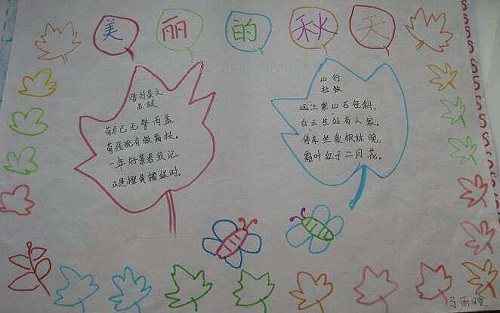 美丽的秋天
赠刘景文
苏轼
荷尽已无擎雨盖,
菊残犹有傲霜枝。
一年好景君须记,
正是橙黄橘绿时.
山行
杜牧
远上寒山石径斜,
白云生处有人家.
停车坐爱枫林晚,
霜叶红于二月花.